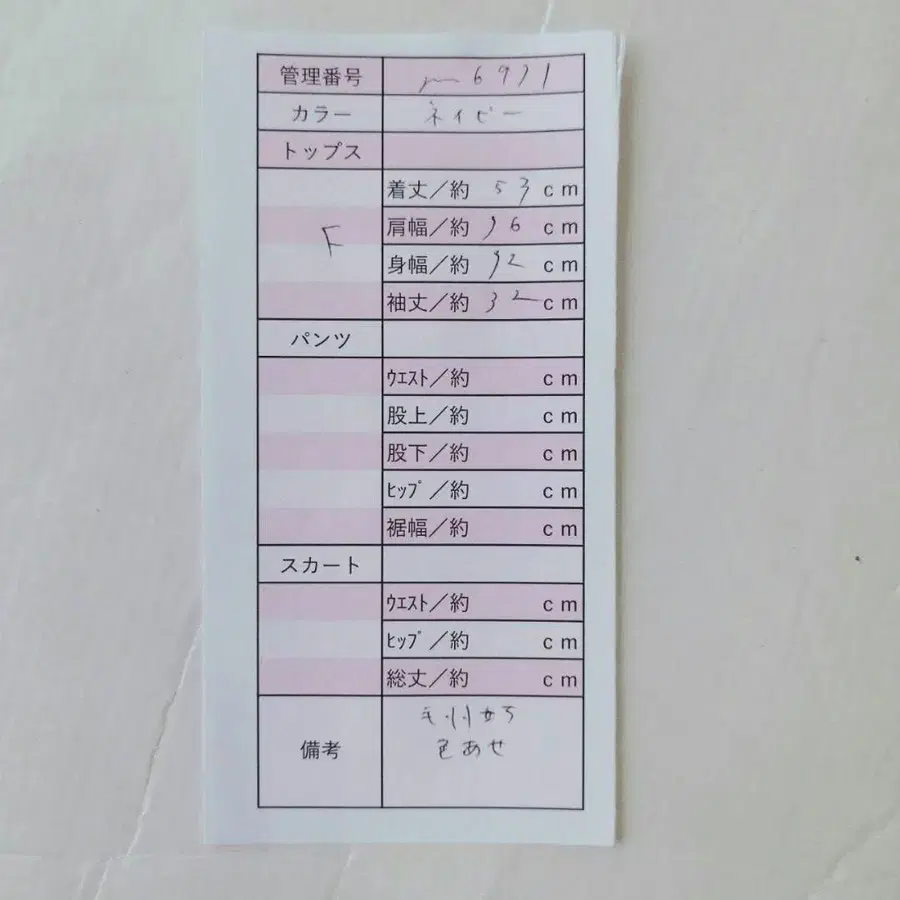 管理番号 6931
カラー ネイビー
トップス
F
着丈／約 53 cm
肩幅／約 36 cm
身幅／約 cm
袖丈／約 32 cm
パンツ
ｳｴｽﾄ／約 cm
股上／約 cm
股下／約 cm
ﾋｯﾌﾟ／約 cm
裾幅／約 cm
スカート
ｳｴｽﾄ／約 cm
ﾋｯﾌﾟ／約 cm
総丈／約 cm
備考
色あせ